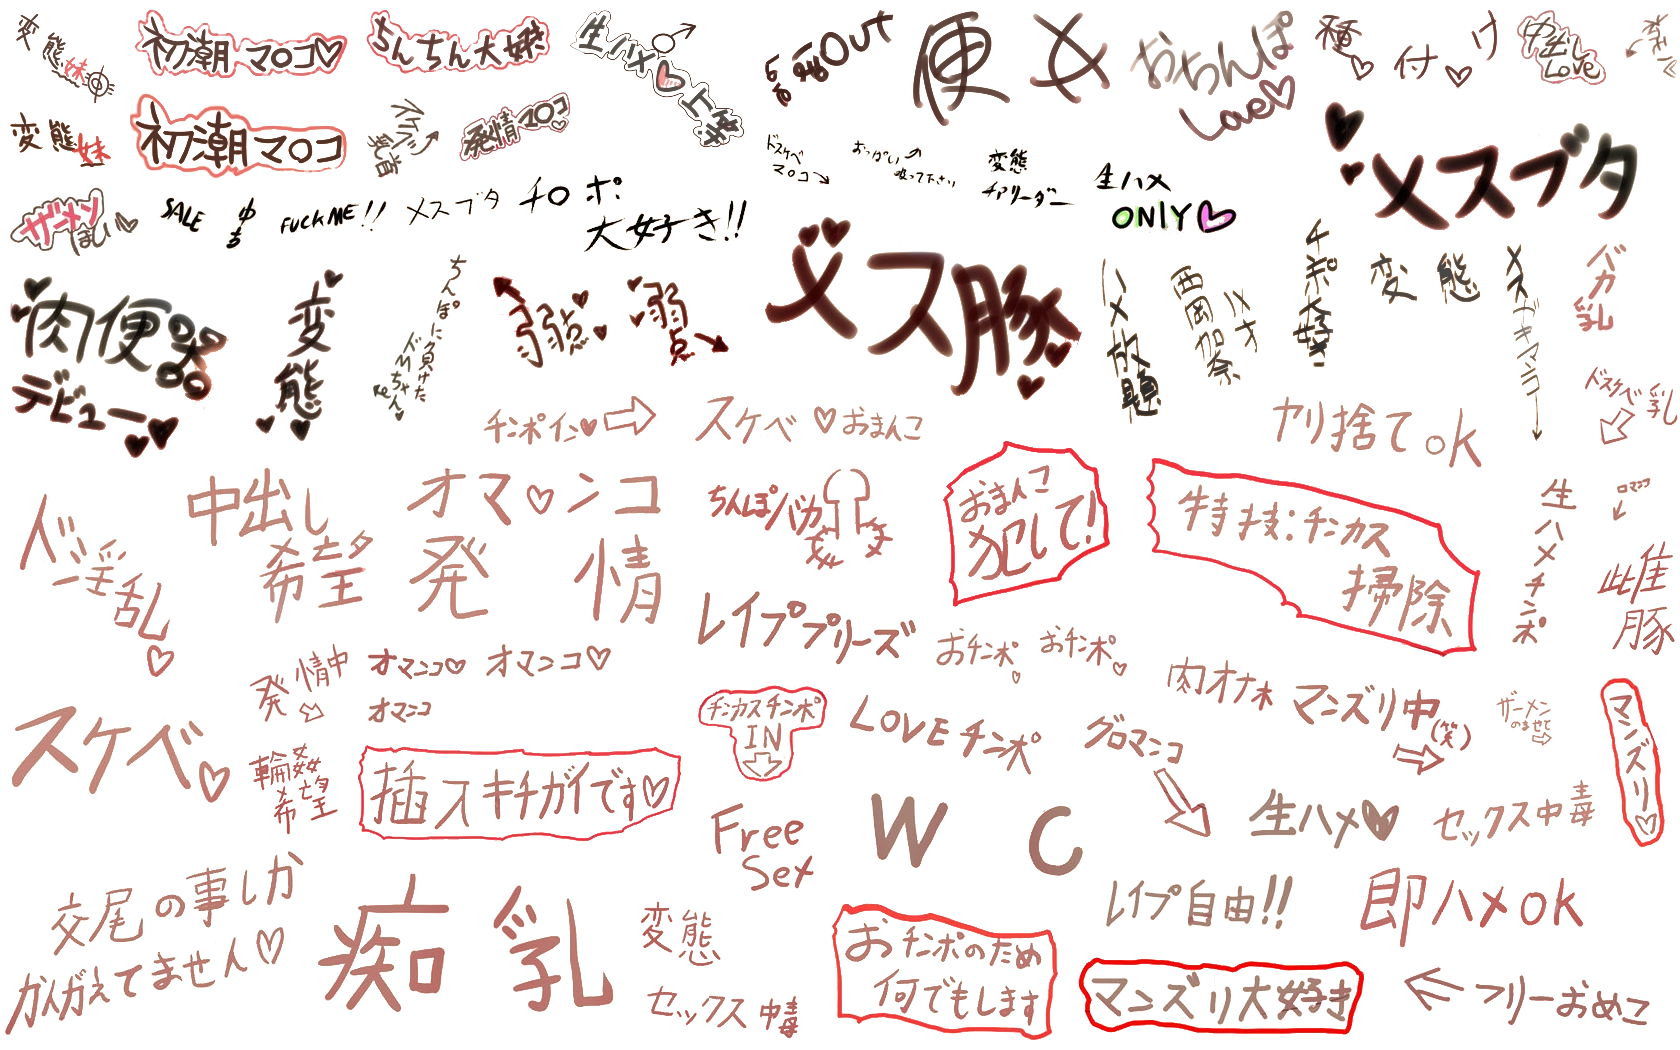 変態妹
ちんちん大好き
生ハメ♡上等
OUT
便
女
おちんぽ
Love♡
種付け♡
中出し
Love
変態妹
発情マ○コ♡
ドスケベ
マ○コ
おっぱいの
吸って下さい
変態
チアリーダー
生ハメ
ONLY♡
メスブタ
ザーメン
ほしい♡
SALE
FUCK ME!!
メスブタ
チ○ポ
大好き!!
肉便器
デビュー
変態
ちんぽに負けた
ドMちゃん
弱点
弱点
メス豚
ハメ放題
チンポ大好き
変態
バカ乳
チンポイン♡
スケベ♡おまんこ
ヤリ捨てok
ドスケベ乳
ド淫乱♡
中出し
希望
オマ♡ンコ
発情
ちんぽバカ
おまんこ
犯して!
特技:チンカス
掃除
生ハメチンポ
雌豚
レイププリーズ
おチンポ♡
おチンポ♡
発情中
オマンコ♡
オマンコ♡
オマンコ
肉オナホ
マンズリ中(笑)
ザーメン
のませて
マンズリ♡
スケベ♡
輪姦
希望
挿入キチガイです♡
チンカスチンポ
IN
LOVEチンポ
グロマンコ
Free
Sex
W C
生ハメ♥
セックス中毒
交尾の事しか
かんがえてません♡
痴乳
変態
セックス中毒
おチンポのため
何でもします
レイプ自由!!
即ハメok
マンズリ大好き
フリーおめこ